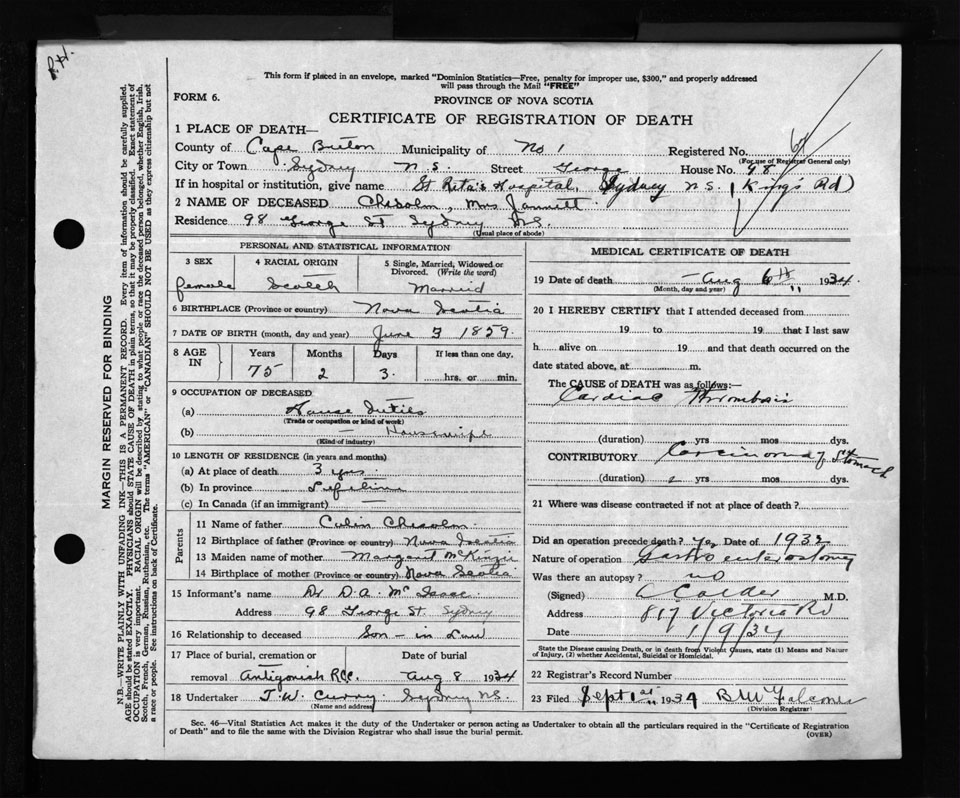 P.H.
This form if placed in an envelope, marked "Dominion Statistics—Free, penalty for improper use, $300," and properly addressed
will pass through the Mail "FREE"
FORM 6.
PROVINCE OF NOVA SCOTIA
CERTIFICATE OF REGISTRATION OF DEATH
1 PLACE OF DEATH—
County of Cape Breton Municipality of No 1 Registered No.
(For use of Registrar General only)
City or Town Sydney N.S. Street George House No. 98
If in hospital or institution, give name St. Rita's Hospital, Sydney N.S. (King's Rd)
2 NAME OF DECEASED Chisolm, Mrs Jannett
Residence 98 George St Sydney N.S.
(Usual place of abode)
PERSONAL AND STATISTICAL INFORMATION
3 SEX 4 RACIAL ORIGIN 5 Single, Married, Widowed or
Divorced. (Write the word)
female Scotch Married
6 BIRTHPLACE (Province or country) Nova Scotia
7 DATE OF BIRTH (month, day and year) June 3 1859
8 AGE IN Years Months Days If less than one day,
75 2 3. hrs. or min.
9 OCCUPATION OF DECEASED
(a) House Duties
(Trade or occupation or kind of work)
(b) Housewife
(Kind of industry)
10 LENGTH OF RESIDENCE (in years and months)
(a) At place of death 3 yrs.
(b) In province Lifetime
(c) In Canada (if an immigrant) —
Parents
11 Name of father Colin Chisolm
12 Birthplace of father (Province or country) Nova Scotia
13 Maiden name of mother Margaret McKinzie
14 Birthplace of mother (Province or country) Nova Scotia
15 Informant's name Dr D.A. McIsaac
Address 98 George St. Sydney
16 Relationship to deceased Son-in Law
17 Place of burial, cremation or Date of burial
removal Antigonish R.C.C. Aug 8 1934
18 Undertaker T.W. Curry Sydney N.S.
(Name and address)
MEDICAL CERTIFICATE OF DEATH
19 Date of death Aug 6th 1934
(Month, day and year)
20 I HEREBY CERTIFY that I attended deceased from
19 to 19 that I last saw
h alive on 19 and that death occurred on the
date stated above, at m.
The CAUSE of DEATH was as follows:—
Cardiac Thrombosis
(duration) yrs mos dys.
CONTRIBUTORY Carcinoma of Stomach
(duration) 2 yrs mos dys.
21 Where was disease contracted if not at place of death?
Did an operation precede death? Yes Date of 1932
Nature of operation Gastro enterostomy
Was there an autopsy? no
(Signed) C Calder M.D.
Address 817 Victoria Rd
Date 1/9/34
State the Disease causing Death, or in death from Violent Causes, state (1) Means and Nature
of Injury, (2) whether Accidental, Suicidal or Homicidal.
22 Registrar's Record Number
23 Filed Sept 1st 1934 B McFalconer
(Division Registrar)
Sec. 46—Vital Statistics Act makes it the duty of the Undertaker or person acting as Undertaker to obtain all the particulars required in the "Certificate of Registration
of Death" and to file the same with the Division Registrar who shall issue the burial permit.
(OVER)
MARGIN RESERVED FOR BINDING
N.B.—WRITE PLAINLY WITH UNFADING INK—THIS IS A PERMANENT RECORD. Every item of information should be carefully supplied.
AGE should be stated EXACTLY. PHYSICIANS should STATE CAUSE OF DEATH in plain terms, so that it may be properly classified. Exact statement of
OCCUPATION is very important. RACIAL ORIGIN will be described by stating to what people or race the deceased person belonged, whether English, Irish,
Scotch, French, German, Russian, Ruthenian, etc. The terms "AMERICAN" or "CANADIAN" SHOULD NOT BE USED as they express citizenship but not
a race or people. See instructions on back of Certificate.